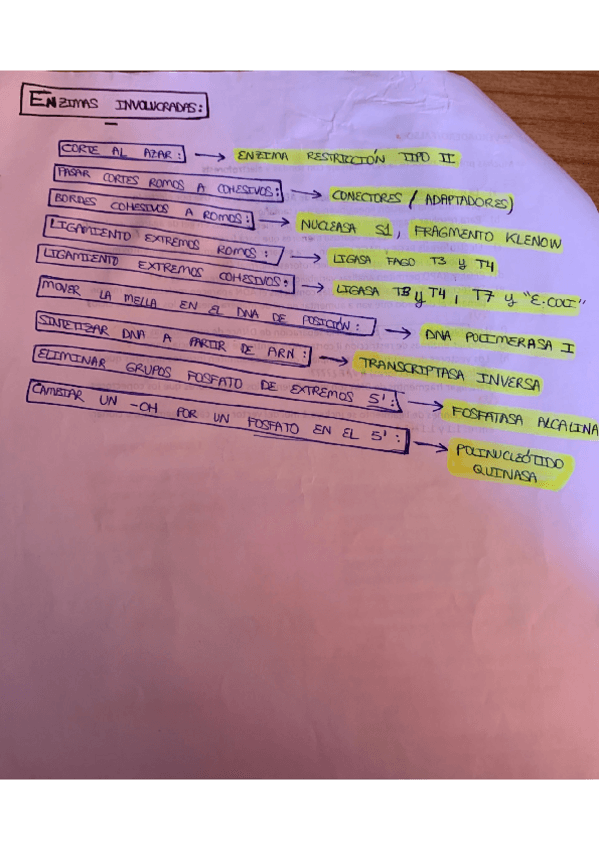 ENZIMAS INVOLUCRADAS:
CORTE AL AZAR: → ENZIMA RESTRICCIÓN TIPO II
PASAR CORTES ROMOS A COHESIVOS: → CONECTORES / ADAPTADORES)
BORDES COHESIVOS A ROMOS: → NUCLEASA S1, FRAGMENTO KLENOW
LIGAMIENTO EXTREMOS ROMOS: → LIGASA FAGO T3 Y T4
LIGAMIENTO EXTREMOS COHESIVOS: → LIGASA T3 y T4, T7 y "E.COLI"
MOVER LA MELLA EN EL DNA DE POSICIÓN: → DNA POLIMERASA I
SINTETIZAR DNA A PARTIR DE ARN: → TRANSCRIPTASA INVERSA
ELIMINAR GRUPOS FOSFATO DE EXTREMOS 5': → FOSFATASA ALCALINA
CAMBIAR UN -OH POR UN FOSFATO EN EL 5': → POLINUCLEÓTIDO
QUINASA